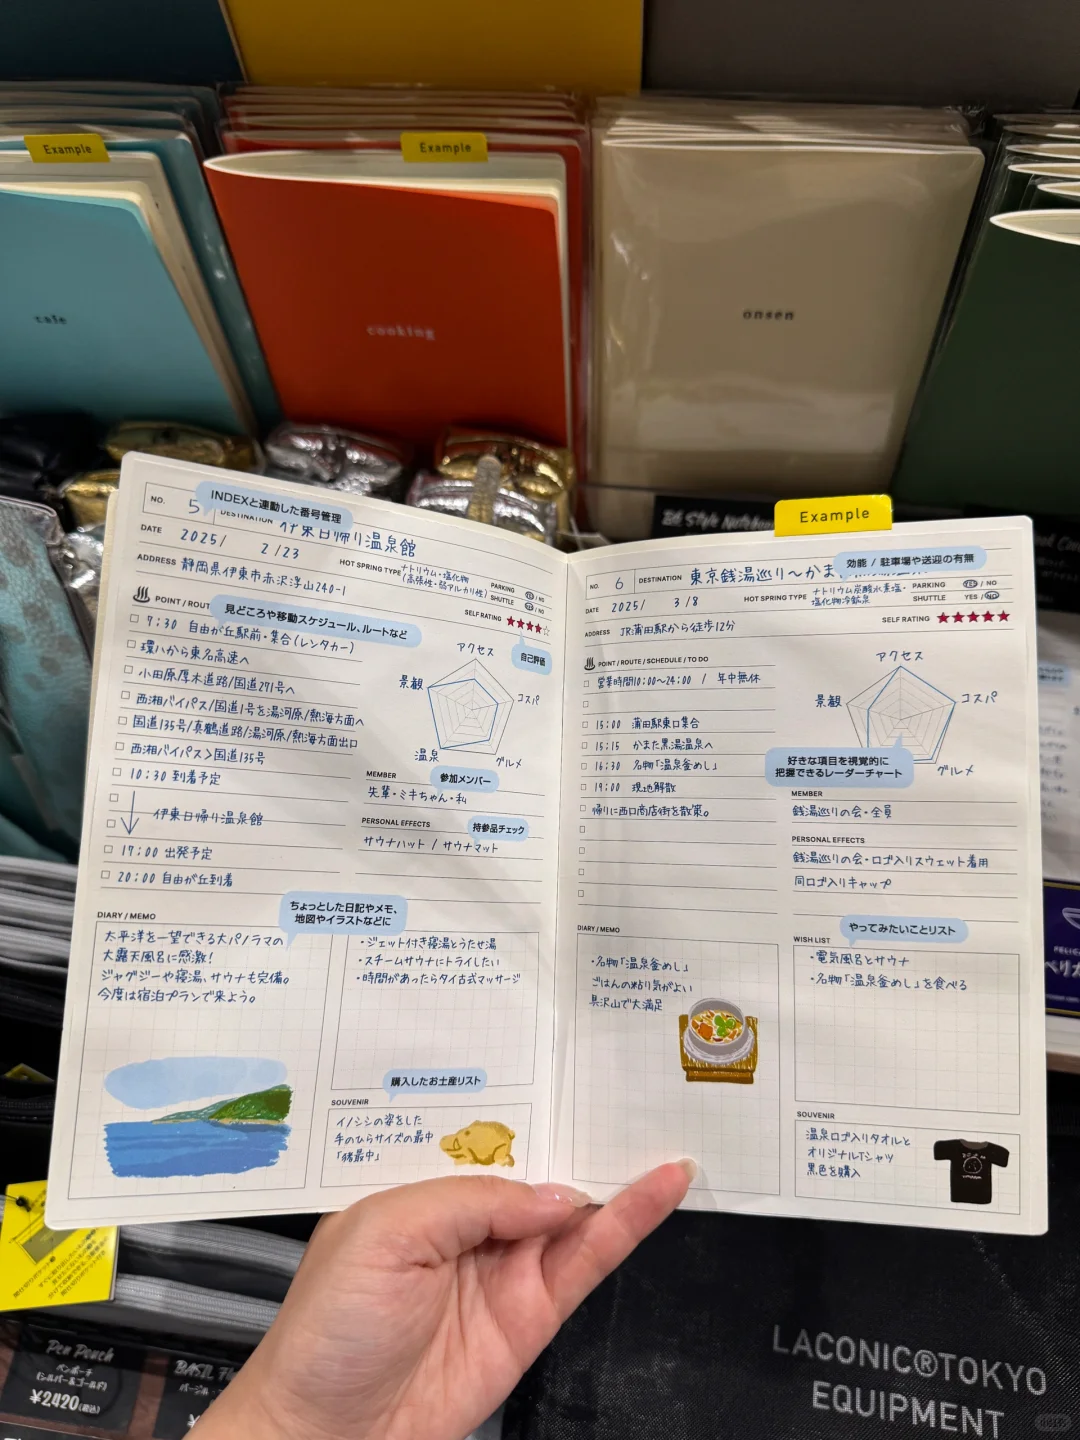 Example
Example
cafe
cooking
onsen
Example
NO. 5
INDEXと連動した番号管理
DESTINATION 伊東日帰り温泉館
DATE 2025/ 2/23
HOT SPRING TYPE ナトリウム・塩化物
(高張性・弱アルカリ性)
PARKING YES / NO
SHUTTLE YES / NO
ADDRESS 静岡県伊東市赤沢浮山240-1
SELF RATING ★★★★☆
自己評価
POINT / ROUT
見どころや移動スケジュール、ルートなど
7:30 自由が丘駅前・集合(レンタカー)
環八から東名高速へ
小田原厚木道路/国道271号へ
西湘バイパス/国道1号を湯河原/熱海方面へ
国道135号/真鶴道路/湯河原/熱海方面出口
西湘バイパス>国道135号
10:30 到着予定
伊東日帰り温泉館
17:00 出発予定
20:00 自由が丘到着
アクセス
景観
コスパ
温泉
グルメ
MEMBER
参加メンバー
先輩・ミキちゃん・私
PERSONAL EFFECTS
持参品チェック
サウナハット / サウナマット
ちょっとした日記やメモ、
地図やイラストなどに
DIARY / MEMO
太平洋を一望できる大パノラマの
大露天風呂に感激!
ジャグジーや寝湯、サウナも完備。
今度は宿泊プランで来よう。
・ジェット付き寝湯とうたせ湯
・スチームサウナにトライしたい
・時間があったらタイ古式マッサージ
購入したお土産リスト
SOUVENIR
イノシシの姿をした
手のひらサイズの最中
「猪最中」
NO. 6
DESTINATION 東京銭湯巡り〜かま
効能 / 駐車場や送迎の有無
DATE 2025/ 3/8
HOT SPRING TYPE ナトリウム炭酸水素塩・
塩化物冷鉱泉
PARKING YES / NO
SHUTTLE YES / NO
ADDRESS JR蒲田駅から徒歩12分
SELF RATING ★★★★★
POINT / ROUTE / SCHEDULE / TO DO
営業時間10:00〜24:00 / 年中無休
15:00 蒲田駅東口集合
15:15 かまた黒湯温泉へ
16:30 名物「温泉釜めし」
19:00 現地解散
帰りに西口商店街を散策。
アクセス
景観
コスパ
グルメ
好きな項目を視覚的に
把握できるレーダーチャート
MEMBER
銭湯巡りの会・全員
PERSONAL EFFECTS
銭湯巡りの会・ロゴ入りスウェット着用
同ロゴ入りキャップ
DIARY / MEMO
・名物「温泉釜めし」
ごはんの粘り気がよい
具沢山で大満足
やってみたいことリスト
WISH LIST
・電気風呂とサウナ
・名物「温泉釜めし」を食べる
SOUVENIR
温泉ロゴ入りタオルと
オリジナルTシャツ
黒色を購入
Pen Pouch
ペンポーチ
(シルバー&ゴールド)
¥2,420(税込)
LACONIC®TOKYO
EQUIPMENT